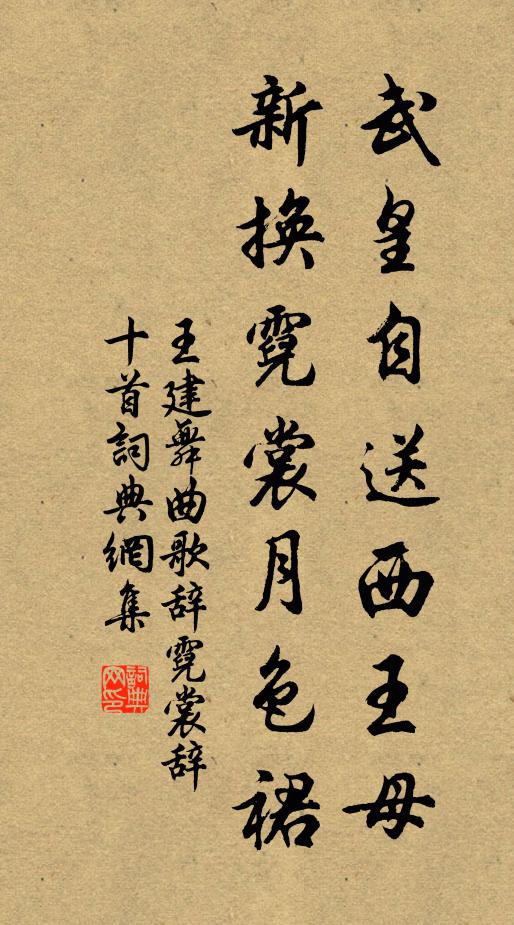 武皇自送西王母
新换霓裳月色裙
王建舞曲歌辞霓裳辞
十首詞典網集
詞典
网印